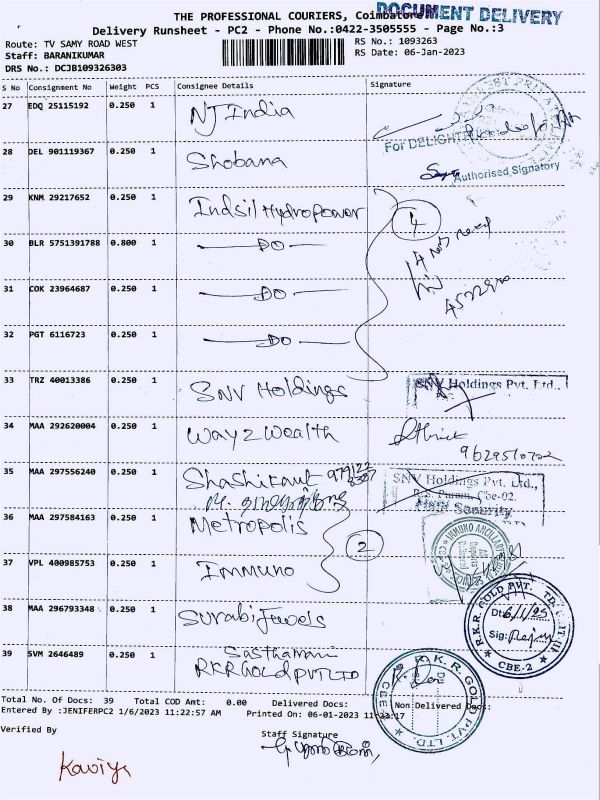 THE PROFESSIONAL COURIERS, Coimbatore
DOCUMENT DELIVERY
Delivery Runsheet - PC2 - Phone No.:0422-3505555 - Page No.:3
Route: TV SAMY ROAD WEST
RS No.: 1093263
Staff: BARANIKUMAR
RS Date: 06-Jan-2023
DRS No.: DCJB109326303
S No Consignment No Weight PCS Consignee Details Signature
27 EDQ 25115192 0.250 1 NJ India
For DELIGHT
28 DEL 901119367 0.250 1 Shobana
Authorised Signatory
29 KNM 29217652 0.250 1 Indsil Hydropower
4
30 BLR 5751391788 0.800 1 DO
31 COK 23964687 0.250 1 DO
32 PGT 6116723 0.250 1 DO
33 TRZ 40013386 0.250 1 SNV Holdings
SNV Holdings Pvt. Ltd.,
34 MAA 292620004 0.250 1 Way 2 Wealth
35 MAA 297556240 0.250 1 Shashikant
SNV Holdings Pvt. Ltd.,
R.S. Puram, Cbe-02.
Main Security
36 MAA 297584163 0.250 1 Metropolis
2
37 VPL 400985753 0.250 1 Immuno
38 MAA 296793348 0.250 1 Surabi Jewels
R.K.R. GOLD PVT. LTD
Sig:
CBE-2
39 SVM 2646489 0.250 1
RKR GOLD PVT LTD
R. K. R. GOLD PVT. LTD.
Total No. Of Docs: 39 Total COD Amt: 0.00 Delivered Docs: Non Delivered Docs:
Entered By :JENIFERPC2 1/6/2023 11:22:57 AM Printed On: 06-01-2023
Verified By
Staff Signature
Kaviya